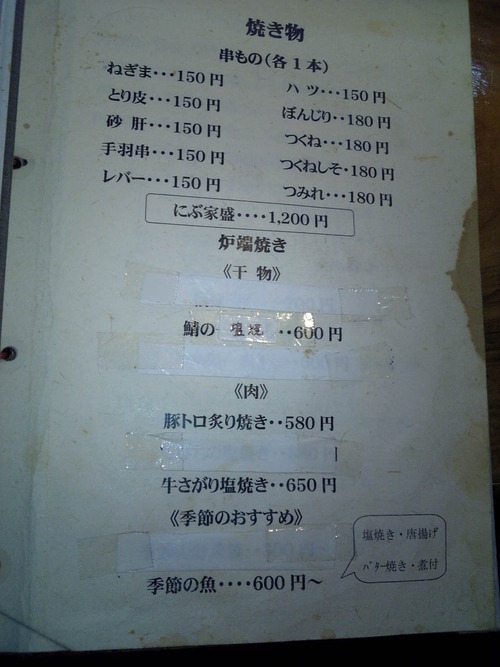 焼き物
串もの(各1本)
ねぎま･･･150円
とり皮･･･150円
砂 肝･･･150円
手羽串･･･150円
レバー･･･150円
ハ ツ･･･150円
ぼんじり･･180円
つくね･･･180円
つくねしそ･180円
つみれ･･･180円
にぶ家盛････1,200円
炉端焼き
《干 物》
鯖の 塩焼 ･･600円
《肉》
豚トロ炙り焼き･･580円
牛さがり塩焼き･･650円
《季節のおすすめ》
季節の魚････600円～
塩焼き・唐揚げ
バター焼き・煮付